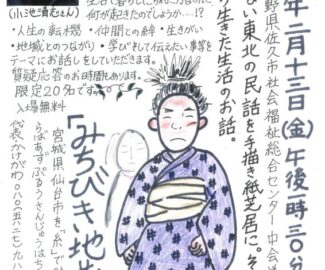 年二月十三日(金)午後一時三〇分
野県佐久市社会福祉総合センター中会議
ない東北の民話を手描き紙芝居に。そ
り生きた生活のお話。
何が起きたのでしょうか…!?
・人生の転機 ・仲間との絆 ・生きがい
・地域とのつながり ・学びそして伝えたい事等を
テーマにお話しをしていただきます。
質疑応答のお時間あります。
限定20名です
入場無料
「みちびき地
宮城県仙台市を「糸」で
らばあずぷるうさんじゅうはち
代表かけがわ〇八〇・五二七九・八